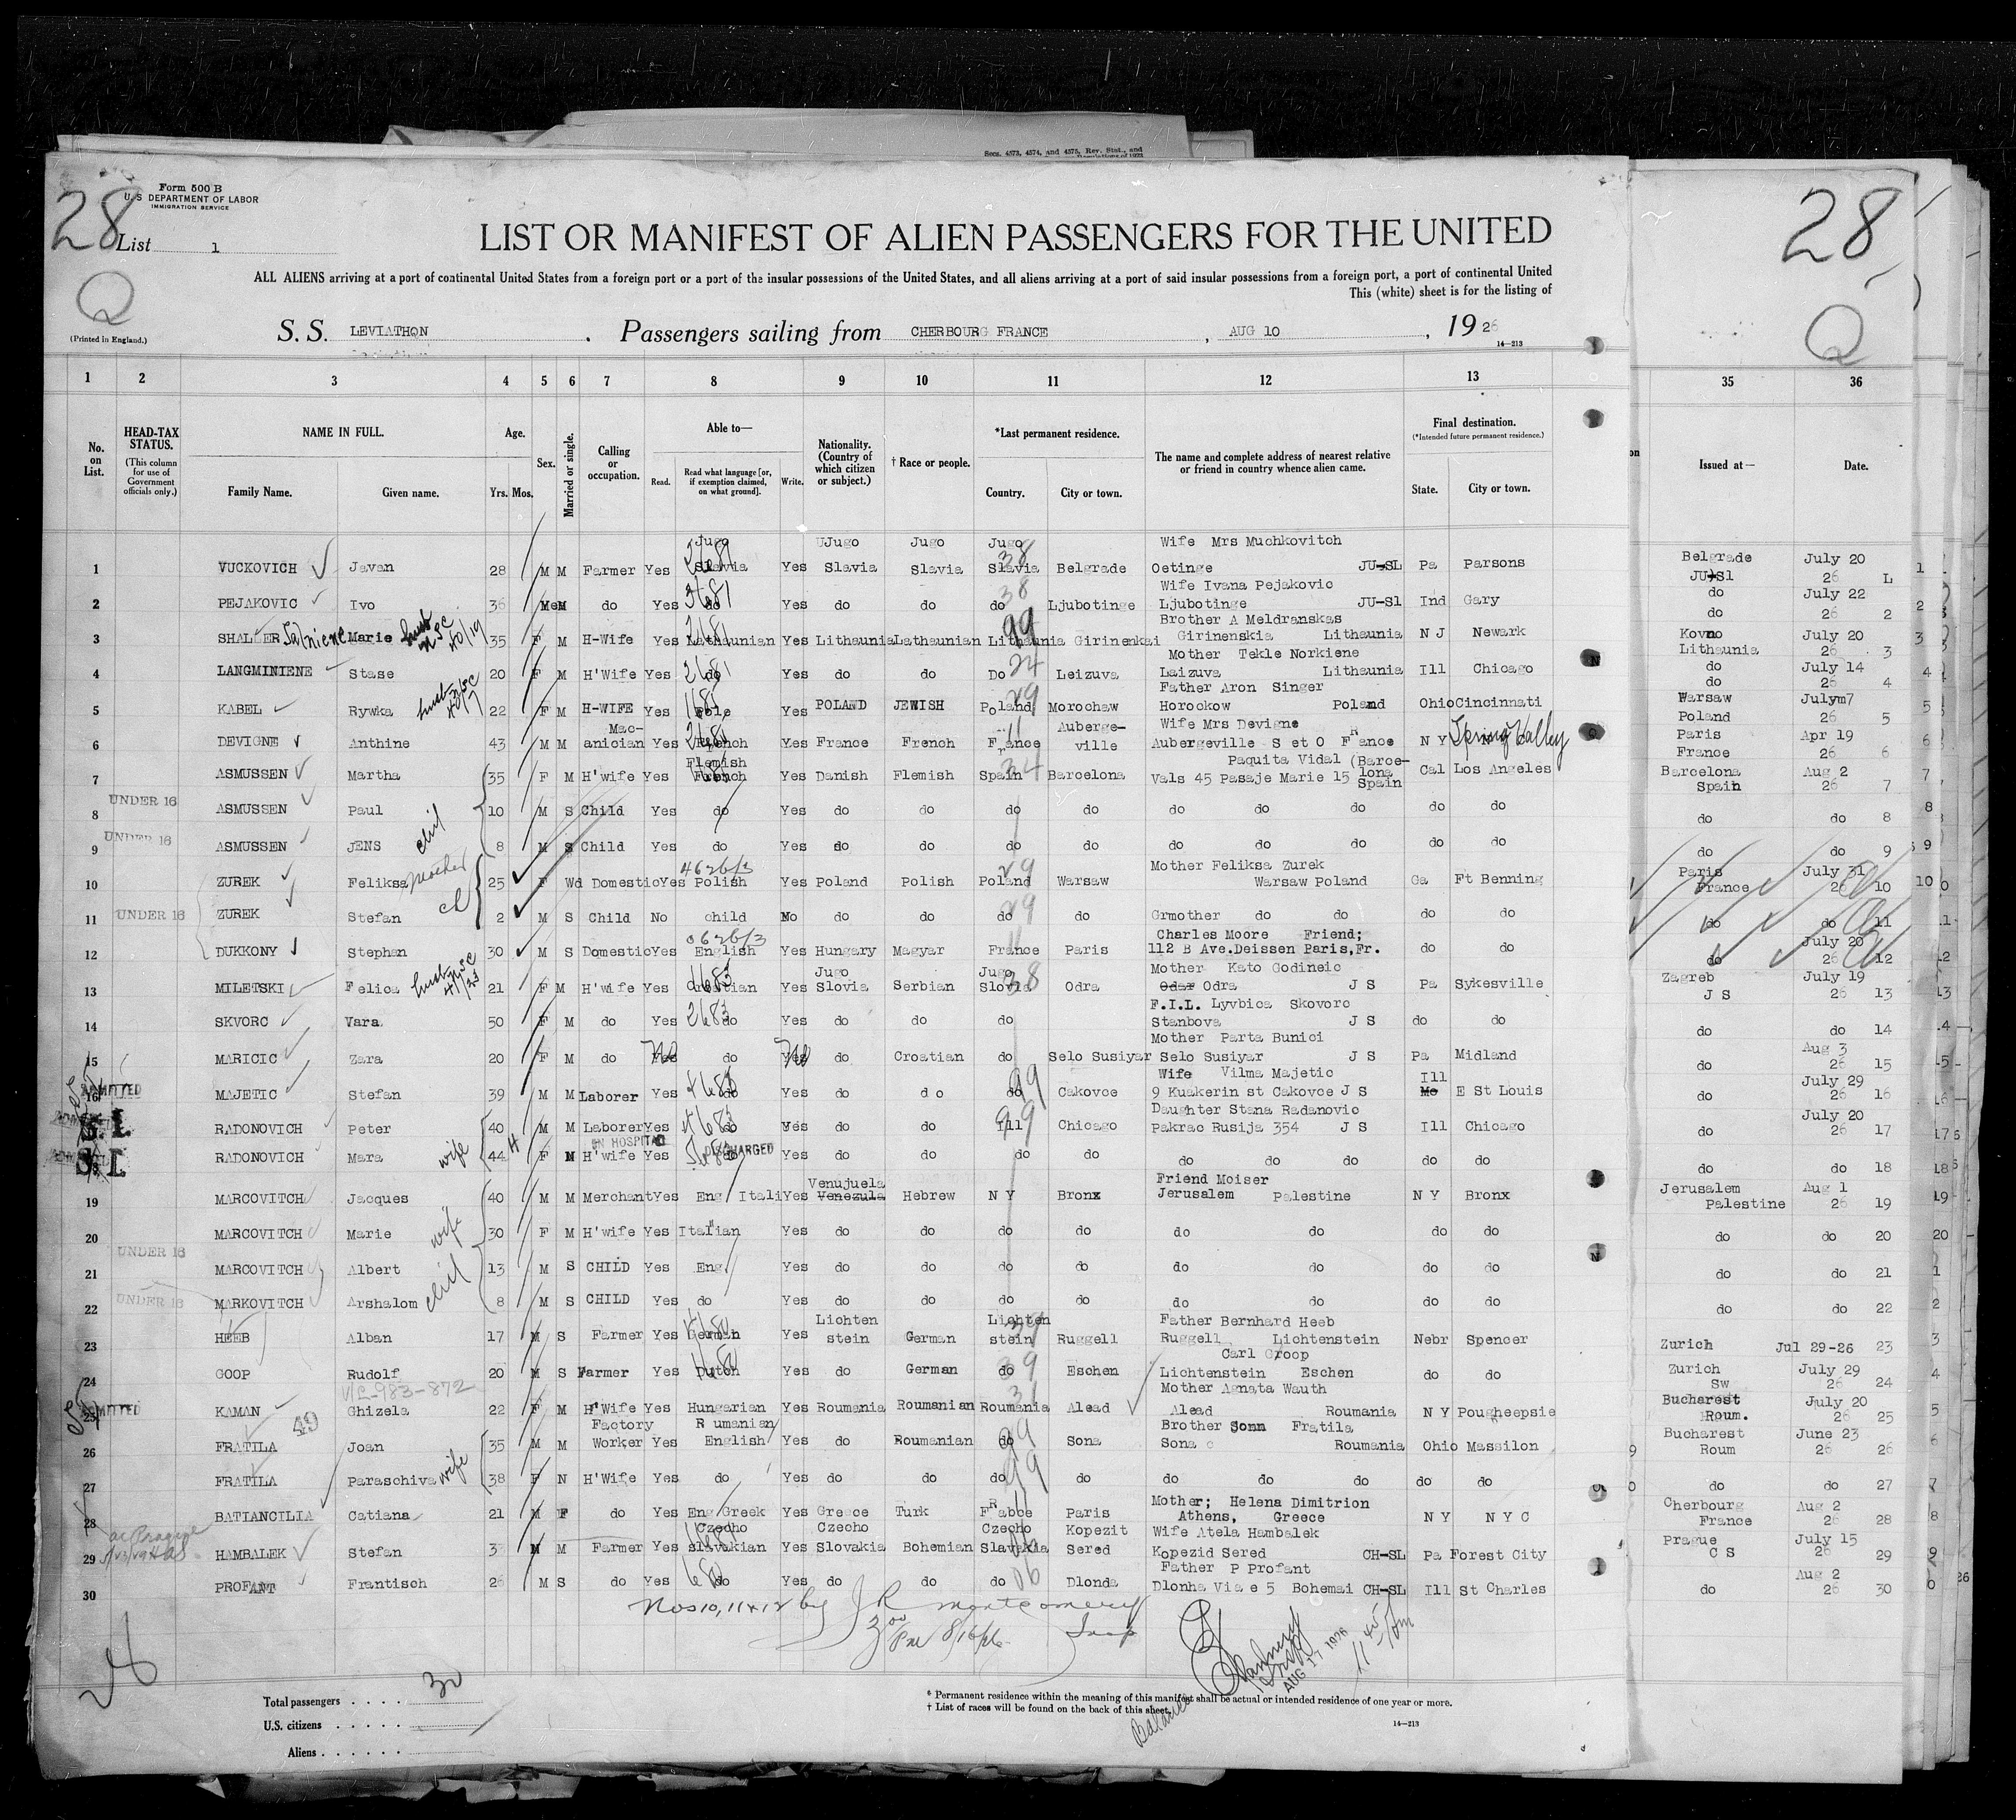 Secs. 4573, 4574, and 4575, Rev. Stat., and
Form 500 B
U. S. DEPARTMENT OF LABOR
IMMIGRATION SERVICE
28
28
List 1
LIST OR MANIFEST OF ALIEN PASSENGERS FOR THE UNITED
ALL ALIENS arriving at a port of continental United States from a foreign port or a port of the insular possessions of the United States, and all aliens arriving at a port of said insular possessions from a foreign port, a port of continental United
This (white) sheet is for the listing of
Q
Q
(Printed in England.)
S. S. LEVIATHON . Passengers sailing from CHERBOURG FRANCE , AUG 10 , 1926
14—213
1 2 3 4 5 6 7 8 9 10 11 12 13 35 36
No. on List.
HEAD-TAX STATUS.
(This column for use of Government officials only.)
NAME IN FULL.
Family Name. Given name.
Age.
Yrs. Mos.
Sex.
Married or single.
Calling or occupation.
Able to—
Read. Read what language [or, if exemption claimed, on what ground]. Write.
Nationality. (Country of which citizen or subject.)
† Race or people.
*Last permanent residence.
Country. City or town.
The name and complete address of nearest relative or friend in country whence alien came.
Final destination.
(*Intended future permanent residence.)
State. City or town.
Issued at— Date.
Jugo UJugo Jugo Jugo Wife Mrs Muchkovitch
1 VUCKOVICH Javan 28 M M Farmer Yes Slavia Yes Slavia Slavia Slavia Belgrade Oetinge JU-SL Pa Parsons Belgrade JU-Sl July 20 26 1
Wife Ivana Pejakovic
2 PEJAKOVIC Ivo 36 M M do Yes do Yes do do do Ljubotinge Ljubotinge JU-Sl Ind Gary do do July 22 26 2
Brother A Meldranskas
3 SHALLER Marie 35 F M H-Wife Yes Lathaunian Yes Lithaunia Lathaunian Lithaunia Girinenkai Girinenskia Lithaunia N J Newark Kovno Lithaunia July 20 26 3
Mother Tekle Norkiene
4 LANGMINIENE Stase 20 F M H'Wife Yes do Yes do do Do Leizuva Laizuva Lithaunia Ill Chicago do do July 14 26 4
Father Aron Singer
5 KABEL Rywka 22 F M H-WIFE Yes Pole Yes POLAND JEWISH Poland Morochaw Horockow Poland Ohio Cincinnati Warsaw Poland Julym7 26 5
Mac- Auberge- Wife Mrs Devigne
6 DEVIGNE Anthine 43 M M anician Yes French Yes France French France ville Aubergeville S et O France N Y Spring Valley Paris France Apr 19 26 6
Flemish Paquita Vidal (Barce-
7 ASMUSSEN Martha 35 F M H'wife Yes French Yes Danish Flemish Spain Barcelona Vals 45 Pasaje Marie 15 lona Spain Cal Los Angeles Barcelona Spain Aug 2 26 7
UNDER 16
8 ASMUSSEN Paul 10 M S Child Yes do Yes do do do do do do do do do do do 8
UNDER 16
9 ASMUSSEN JENS 8 M S Child Yes do Yes do do do do do do do do do do do 9
Mother Feliksa Zurek
10 ZUREK Feliksa mother 25 F Wd Domestic Yes Polish Yes Poland Polish Poland Warsaw Warsaw Poland Ga Ft Benning Paris France July 31 26 10
11 UNDER 16 ZUREK Stefan 2 M S Child No child No do do do do Grmother do do do do do do 11
Charles Moore Friend;
12 DUKKONY Stephan 30 M S Domestic Yes English Yes Hungary Magyar France Paris 112 B Ave.Deissen Paris,Fr. do do do July 20 26 12
Jugo Jugo Mother Kato Godineic
13 MILETSKI Felica 21 F M H'wife Yes Croatian Yes Slovia Serbian Slovia Odra Odar Odra J S Pa Sykesville Zagreb J S July 19 26 13
F.I.L. Lyvbica Skovorc
14 SKVORC Vara 50 F M do Yes do Yes do do do Stanbova J S do do do do 14
Mother Parta Bunici
15 MARICIC Zara 20 F M do Yes No do Yes No do Croatian do Selo Susiyar Selo Susiyar J S Pa Midland do Aug 3 26 15
Wife Vilma Majetic
16 ADMITTED MAJETIC Stefan 39 M M Laborer Yes do Yes do do do Cakovce 9 Kuakerin st Cakovce J S Ill Mo E St Louis do July 29 26 16
Daughter Stana Radanovic
S.I. RADONOVICH Peter 40 M M Laborer Yes do Yes do do Ill Chicago Pakrac Rusija 354 J S Ill Chicago do July 20 26 17
IN HOSPITAL DISCHARGED
S.I. RADONOVICH Mara wife 44 F M H'wife Yes do Yes do do do do do do do do do do do 18
Venujuela Friend Moiser
19 MARCOVITCH Jacques 40 M M Merchant Yes Eng Itali Yes Venezula Hebrew N Y Bronx Jerusalem Palestine N Y Bronx Jerusalem Palestine Aug 1 26 19
20 MARCOVITCH Marie wife 30 F M H'wife Yes Italian Yes do do do do do do do do do do 20
UNDER 16
21 MARCOVITCH Albert 13 M S CHILD Yes Eng Yes do do do do do do do do do do 21
UNDER 16
22 MARKOVITCH Arshalom 8 M S CHILD Yes do Yes do do do do do do do do do do 22
Lichten Lichten Father Bernhard Heeb
23 HEEB Alban 17 M S Farmer Yes German Yes stein German stein Ruggell Ruggell Lichtenstein Nebr Spencer Zurich Jul 29-26 23
Carl Groop
24 GOOP Rudolf 20 M S Farmer Yes Dutch Yes do German do Eschen Lichtenstein Eschen do do Zurich Sw July 29 26 24
V/L-983-872 Mother Agnata Wauth
25 ADMITTED KAMAN Ghizela 22 F M H'Wife Yes Hungarian Yes Roumania Roumanian Roumania Alead Alead Roumania N Y Pougheepsie Bucharest Roum. July 20 26 25
49 Factory Rumanian Brother Sonn Fratila
26 FRATILA Joan 35 M M Worker Yes English Yes do Roumanian do Sona Sona Roumania Ohio Massilon Bucharest Roum June 23 26 26
27 FRATILA Paraschiva wife 38 F N H'Wife Yes do Yes do do do do do do do do do do do 27
Mother; Helena Dimitrion
28 BATIANCILIA Catiana 21 M F do Yes Eng Greek Yes Greece Turk Frabce Paris Athens, Greece N Y N Y C Cherbourg France Aug 2 26 28
Czecho Czecho Czecho Kopezit Wife Atela Hambalek
29 HAMBALEK Stefan M M Farmer Yes slavakian Yes Slovakia Bohemian Slavakia Sered Kopezid Sered CH-SL Pa Forest City Prague C S July 15 26 29
Father P Profant
30 PROFANT Frantisch 26 M S do Yes do Yes do do do Dlonda Dlonha Via e 5 Bohemai CH-SL Ill St Charles do Aug 2 26 30
Nos 10, 11 & 12 by J R Montgomery
3 00 PM 8/16/26 Insp
AUG 17 1926
11 45
Total passengers . . . . 30
U.S. citizens . . . . .
Aliens . . . . . .
* Permanent residence within the meaning of this manifest shall be actual or intended residence of one year or more.
† List of races will be found on the back of this sheet.
14—213